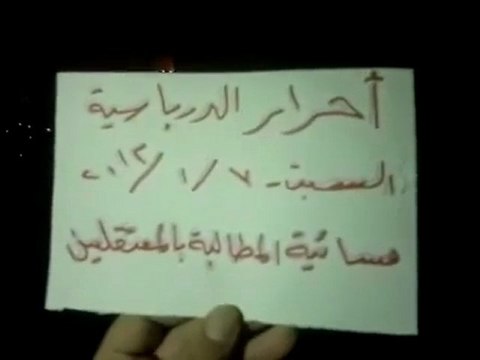 أحرار الدرباسية
السبت - ٧ / ١ / ٢٠١٢م
مسائية المطالبة بالمعتقلين